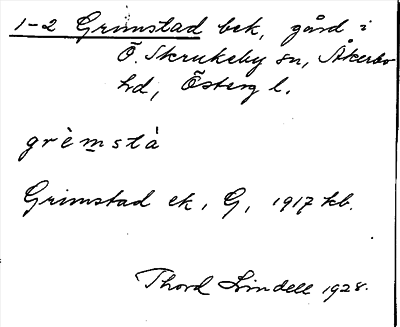 1-2 Grimstad bek, gård i
Ö. Skrukeby sn, Åkerbo
hd, Österg l.
grèmstà
Grimstad ek, G, 1917 kb.
Thord Lindell 1928.